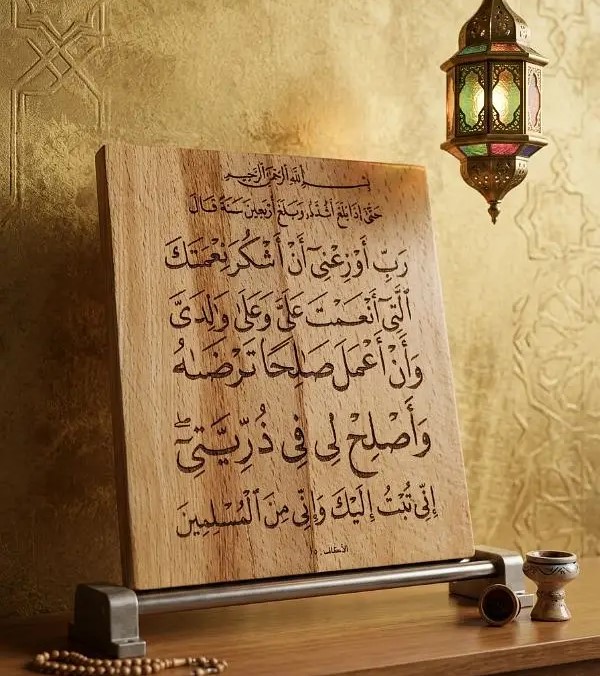 بسم الله الرحمن الرحيم
حَتَّىٰ إِذَا بَلَغَ أَشُدَّهُ وَبَلَغَ أَرْبَعِينَ سَنَةً قَالَ
رَبِّ أَوْزِعْنِىٓ أَنْ أَشْكُرَ نِعْمَتَكَ
ٱلَّتِىٓ أَنْعَمْتَ عَلَىَّ وَعَلَىٰ وَٰلِدَىَّ
وَأَنْ أَعْمَلَ صَٰلِحًا تَرْضَىٰهُ
وَأَصْلِحْ لِى فِى ذُرِّيَّتِىٓ ۖ
إِنِّى تُبْتُ إِلَيْكَ وَإِنِّى مِنَ ٱلْمُسْلِمِينَ